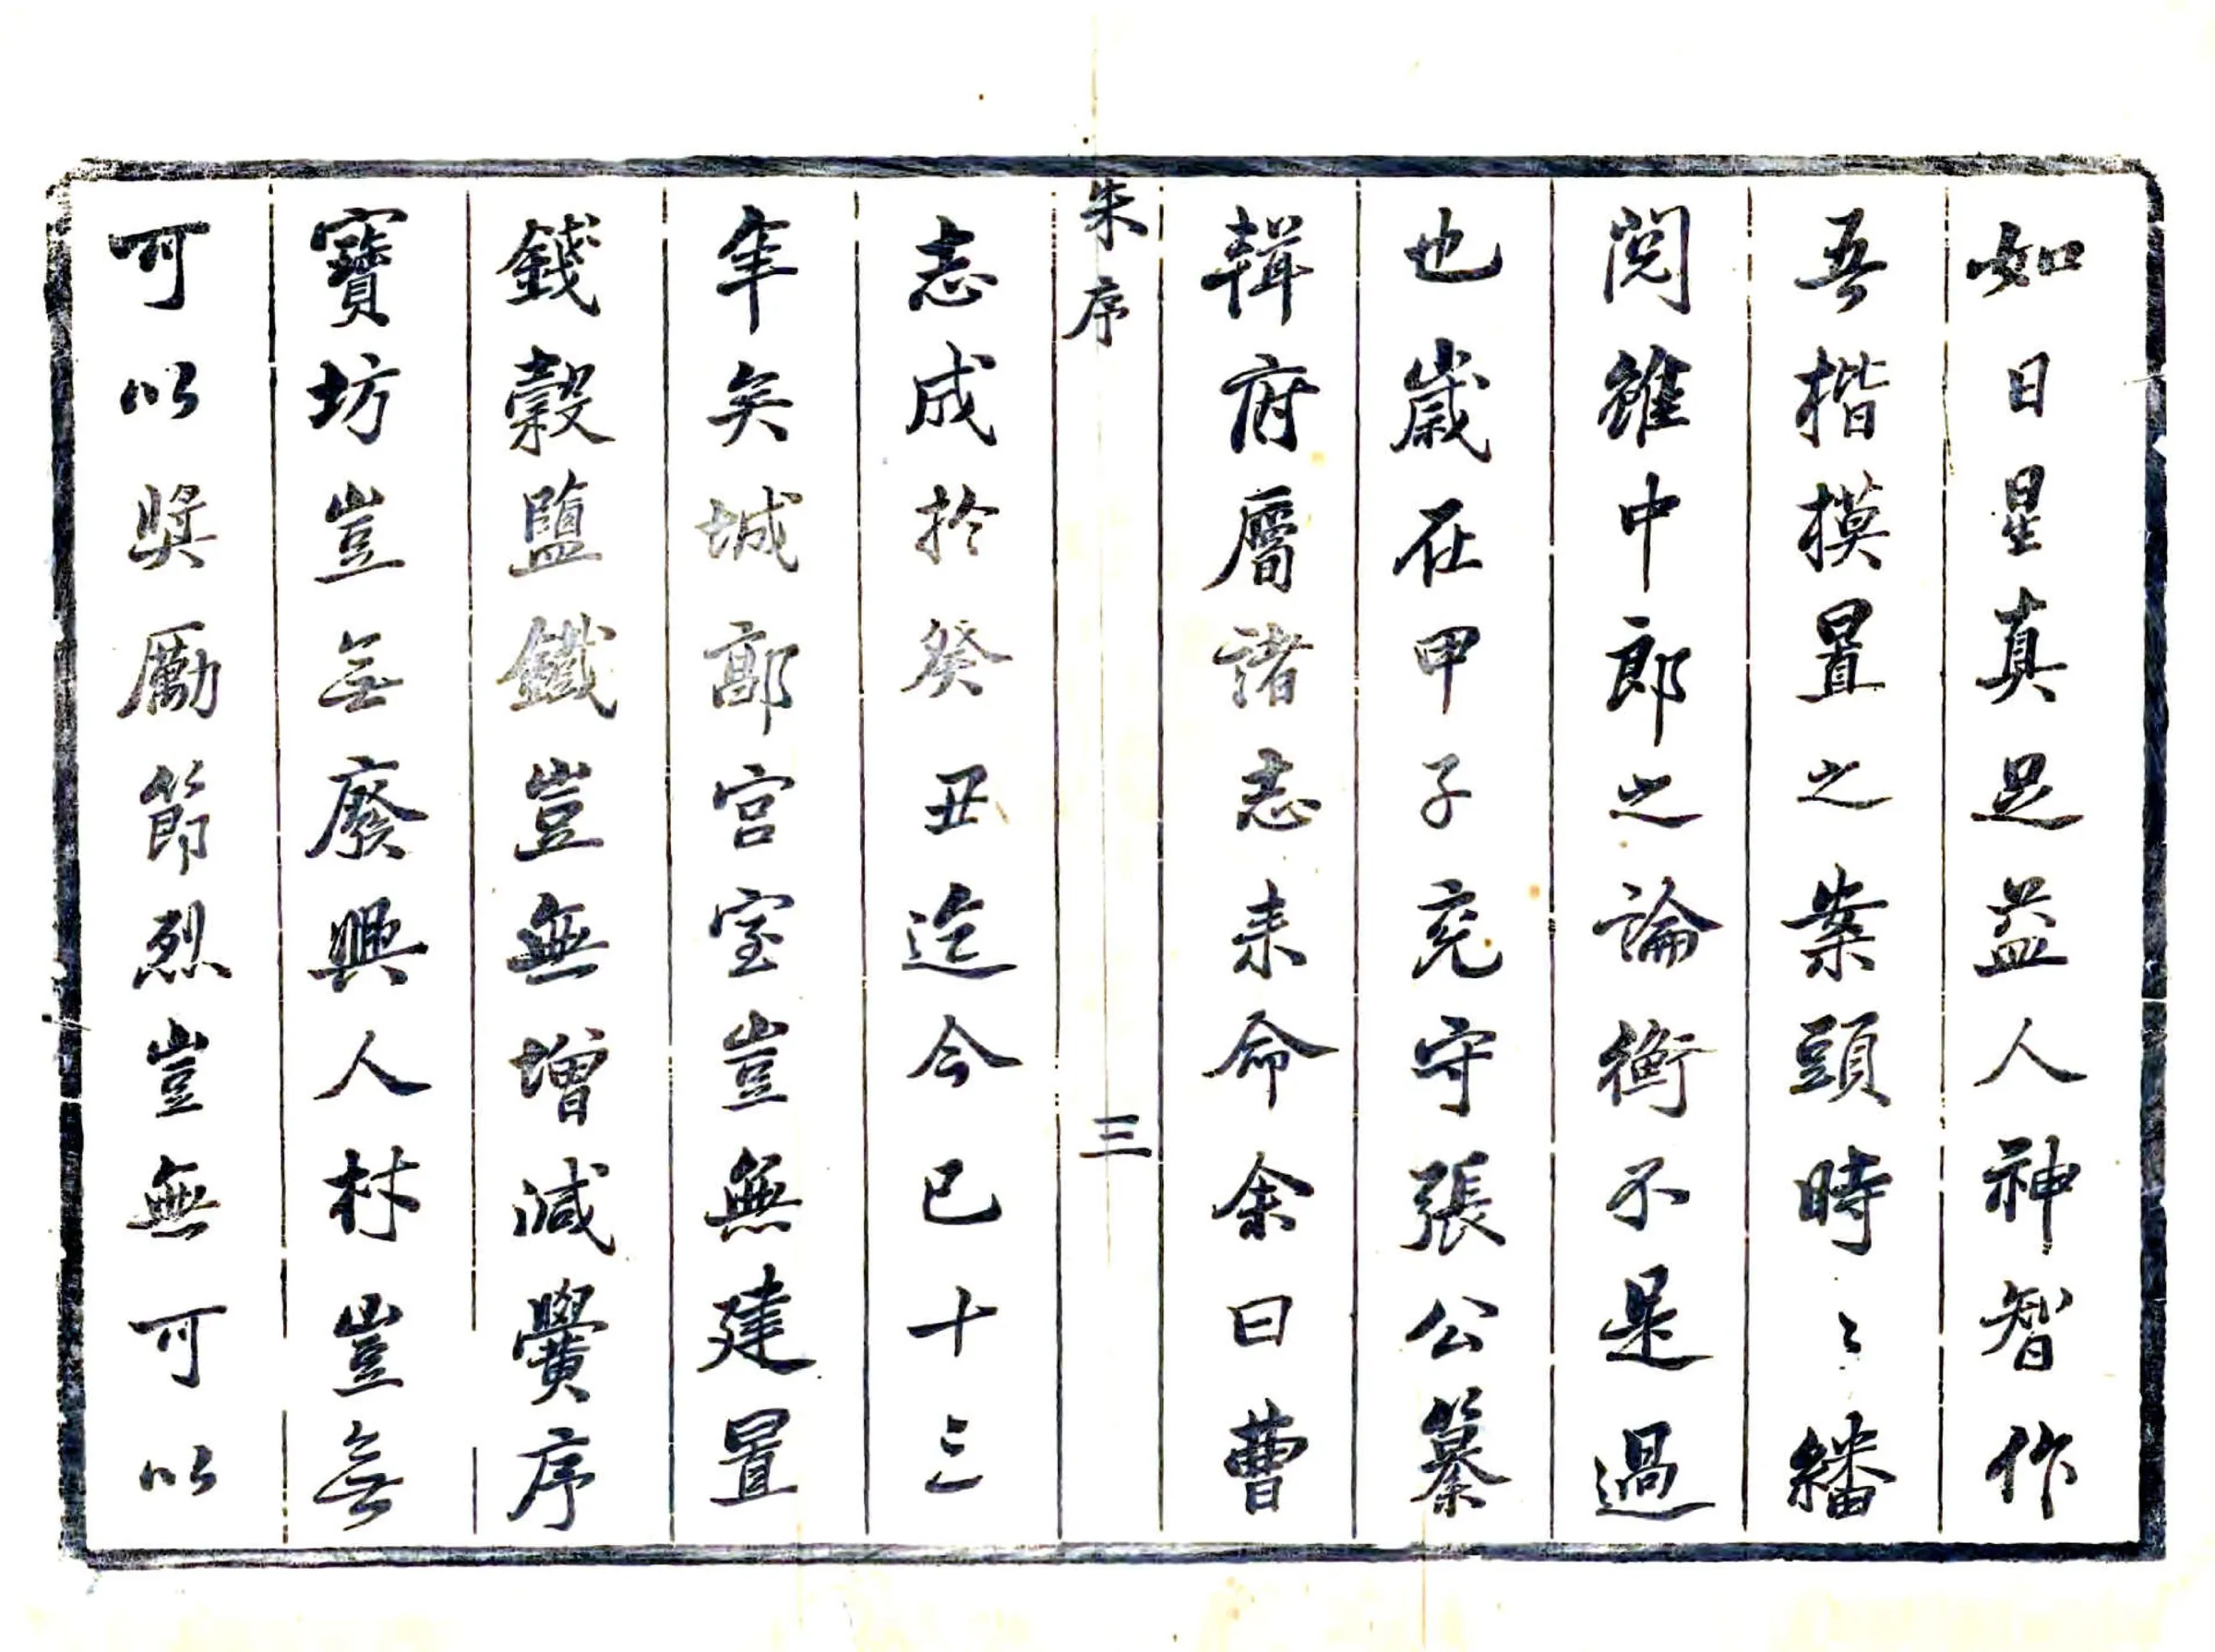 如日星真足益人神智作
吾揩摸置之案頭時〻繙
閲雖中郎之論衡不是過
也歲在甲子兗守張公纂
輯府屬諸志来命余曰曹
朱序
三
志成於癸丑迄今已十三
年矣城郭宫室豈無建置
錢穀鹽鐵豈無增減黌序
寶坊豈无廢興人材豈无
可以奨勵節烈豈無可以